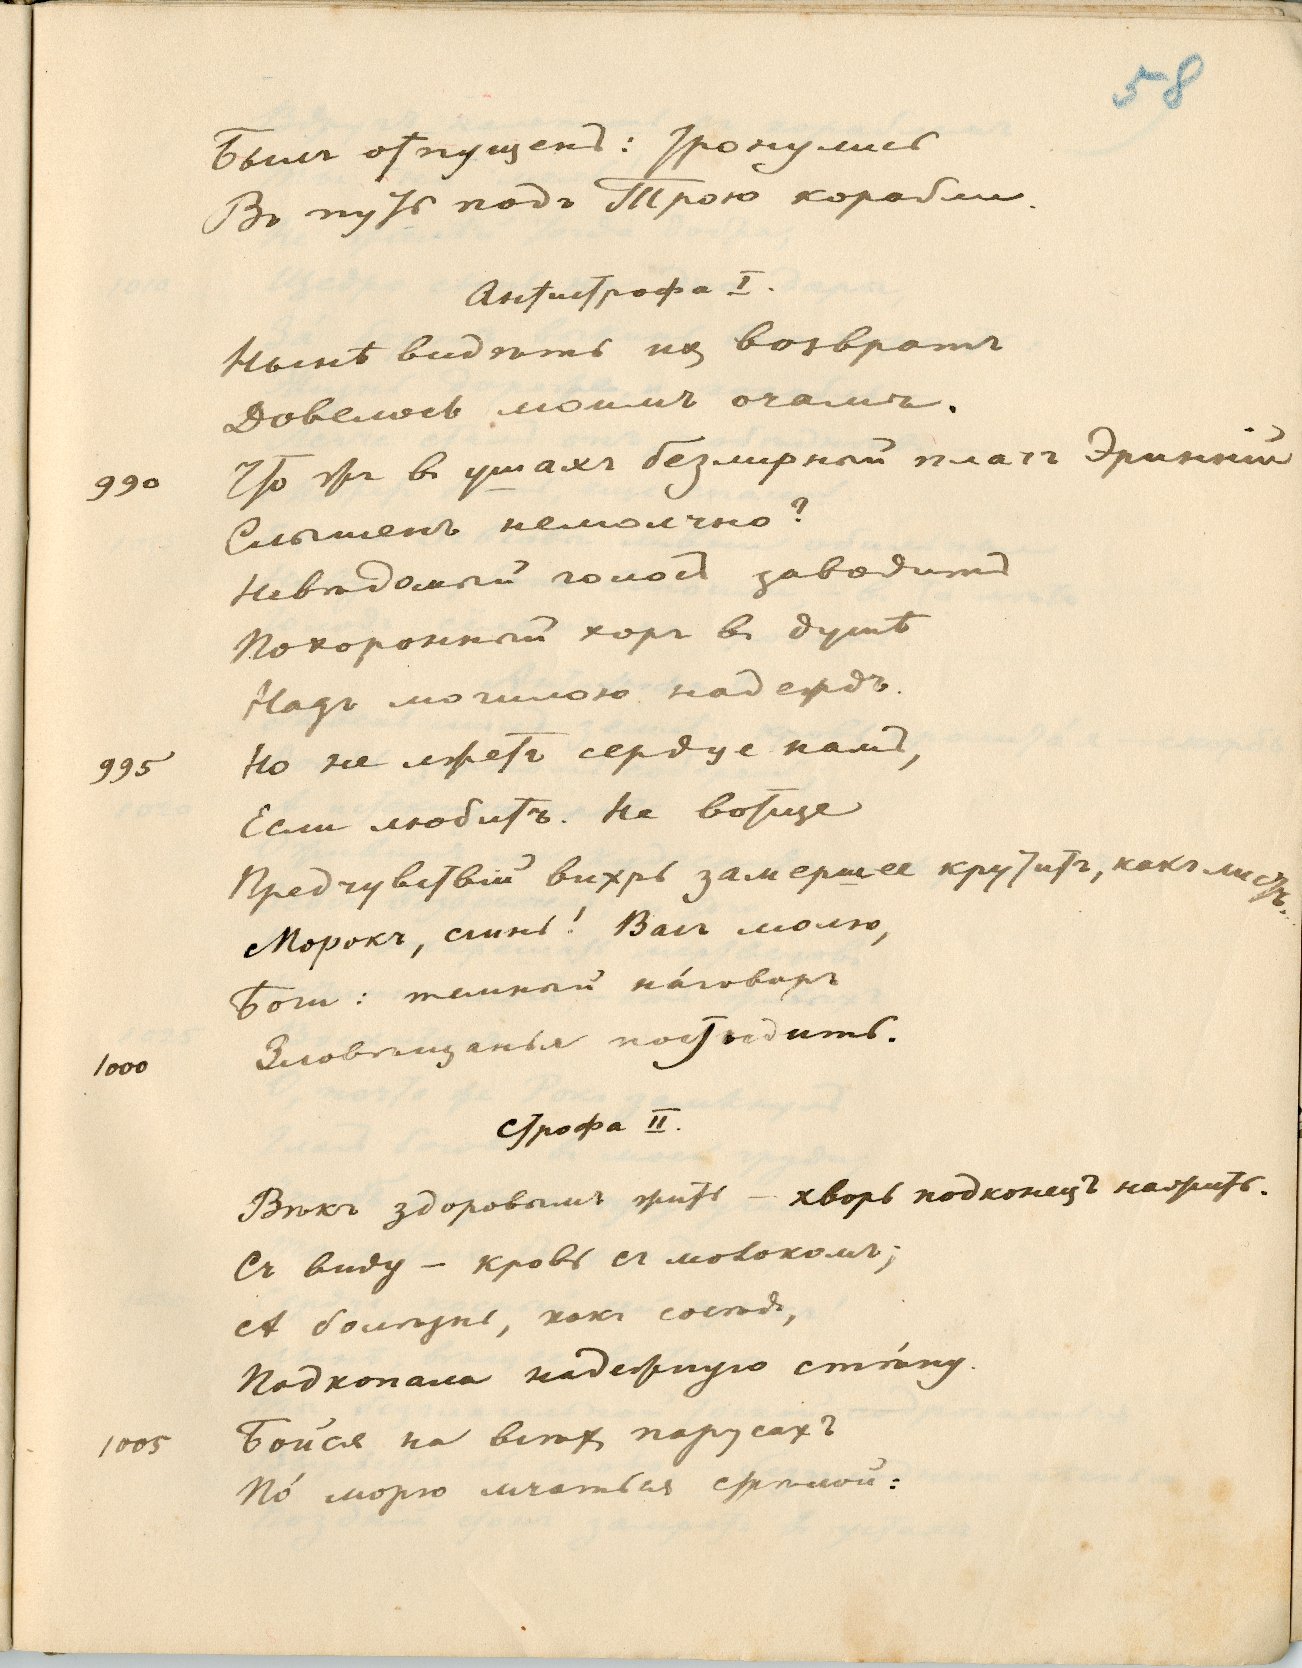 58
Былъ отпущенъ: тронулись
Въ путь подъ Трою корабли.
Антистрофа I.
Нынѣ видѣть их возвратъ
Довелось моимъ очамъ.
990 Что жъ в ушахъ безлирный плачъ Эринній
Слышенъ немолчно?
Невѣдомый голосъ заводитъ
Похоронный хоръ в душѣ
Надъ могилою надеждъ.
995 Но не лжетъ сердце намъ,
Если любитъ. Не вотще
Предчувствій вихрь замершее крутитъ, какъ листъ.
Морокъ, сгинь! Васъ молю,
Боги: темный на́говоръ
1000 Зловѣщанья постыдить.
Строфа II.
Вѣкъ здоровымъ жить – хворь подконецъ нажить.
Съ виду – кровь съ молокомъ;
А болѣзнь, какъ сосѣдъ,
Подкопала надежную стѣ́ну.
1005 Бойся на всѣх парусахъ
По́ морю мчаться стрѣлой: